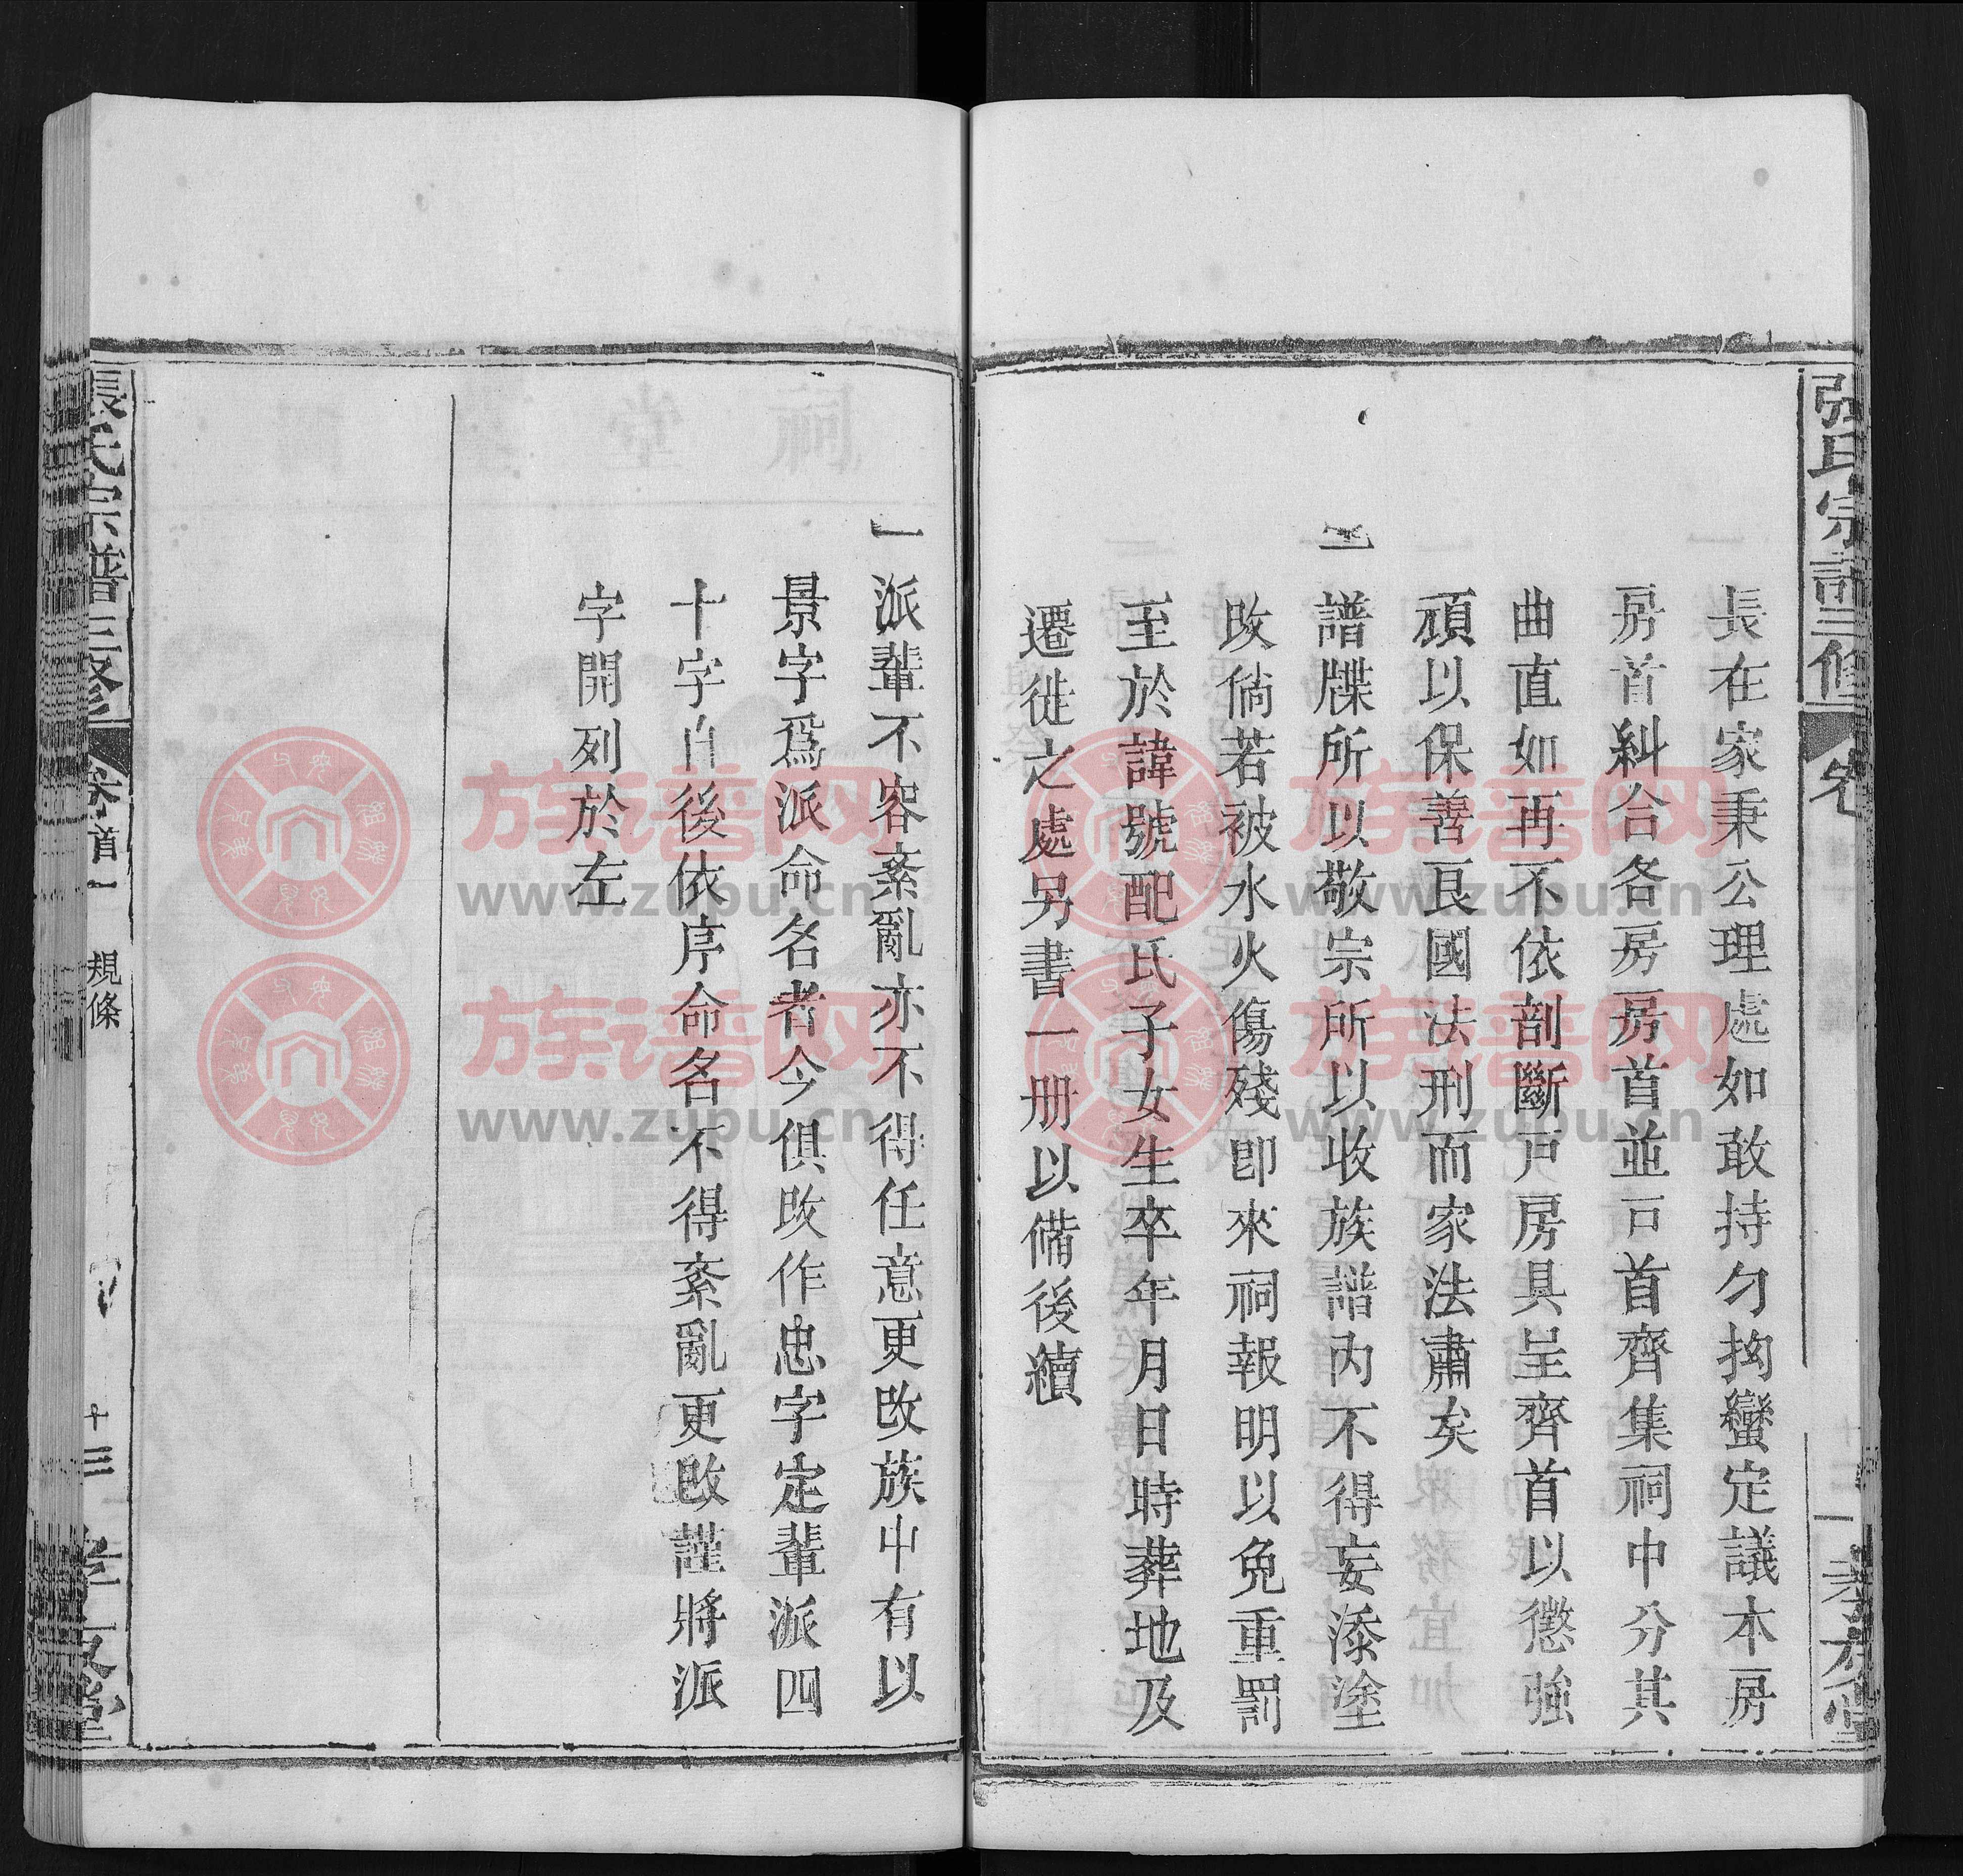 張氏宗譜三修
長在家秉公理處如敢持勾拘蠻定議本房
房首糾合各房房首並戸首齊集祠中分其
曲直如再不依剖斷戸房具呈齊首以懲強
頑以保善良國法刑而家法肅矣
一譜牒所以敬宗所以收族譜內不得妄添塗
改倘若被水火傷殘卽來祠報明以免重罰
至於諱號配氏子女生卒年月日時葬地及
遷徙之處另書一册以備後續
一派輩不容紊亂亦不得任意更改族中有以
景字爲派命名者今俱改作忠字定輩派四
十字自後依序命名不得紊亂更改謹將派
字開列於左
張氏宗譜三修
卷首一
規條
十三
孝友堂
族谱网
www.zupu.cn
族谱网
www.zupu.cn
族谱网
www.zupu.cn
族谱网
www.zupu.cn